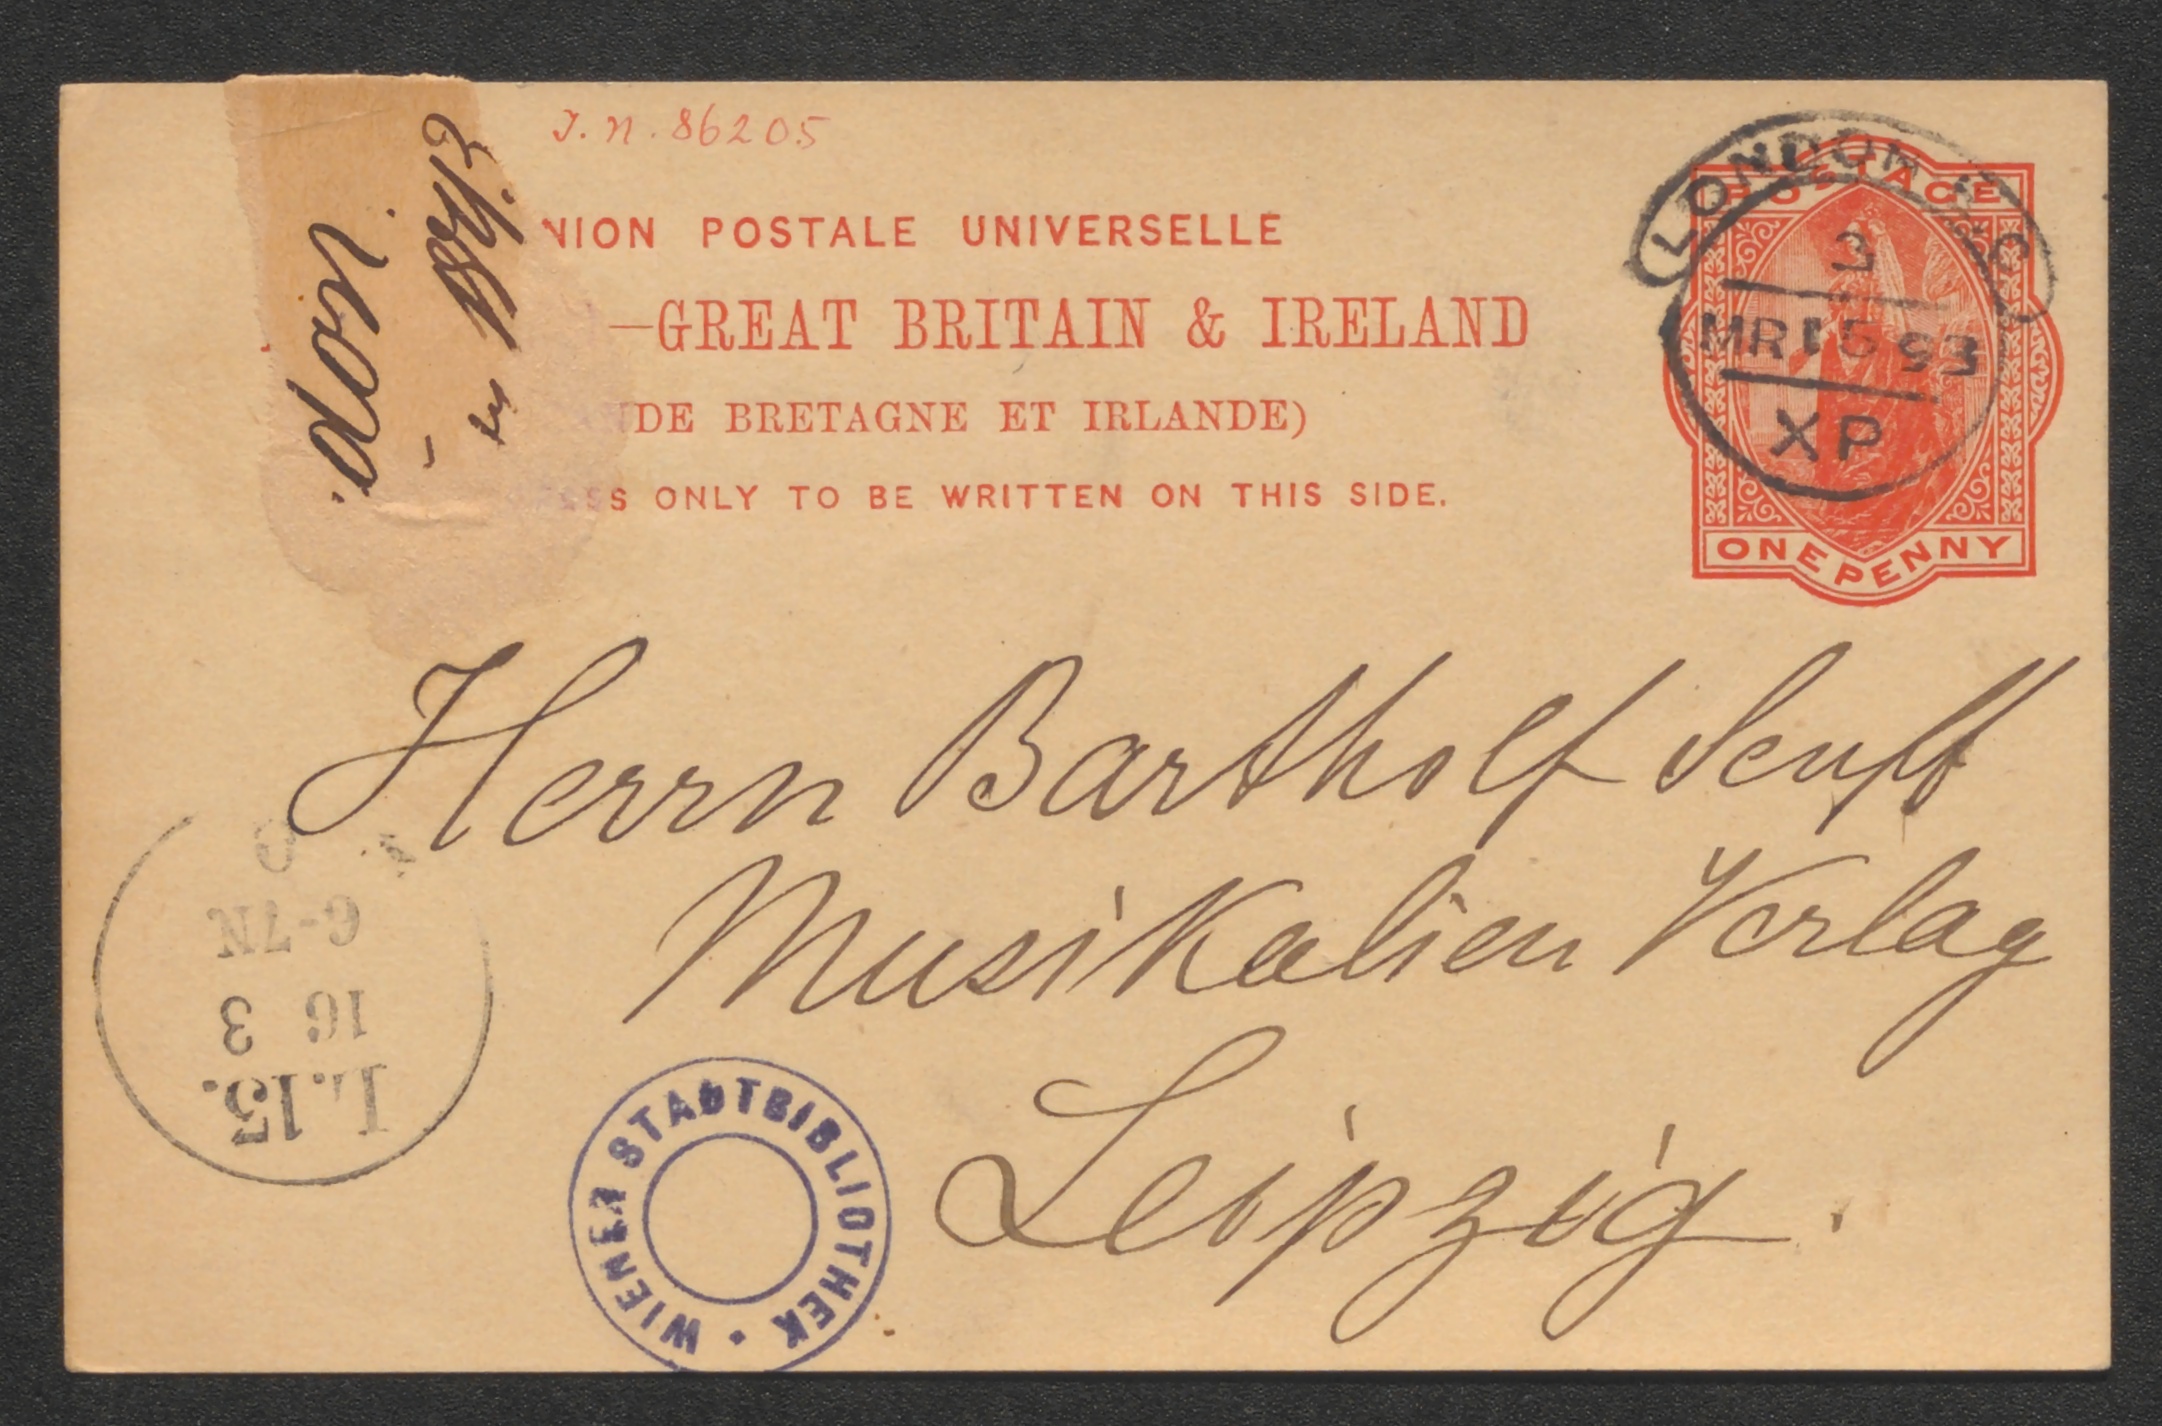 J. N. 86205
NION POSTALE UNIVERSELLE
—GREAT BRITAIN & IRELAND
NDE BRETAGNE ET IRLANDE)
ESS ONLY TO BE WRITTEN ON THIS SIDE.
POSTAGE
ONE PENNY
LONDON
3
MR 15 93
XP
Herrn Bartholf Senff
Musikalien Verlag
Leipzig.
6-7N
16 3
L.13.
WIENER STADTBIBLIOTHEK